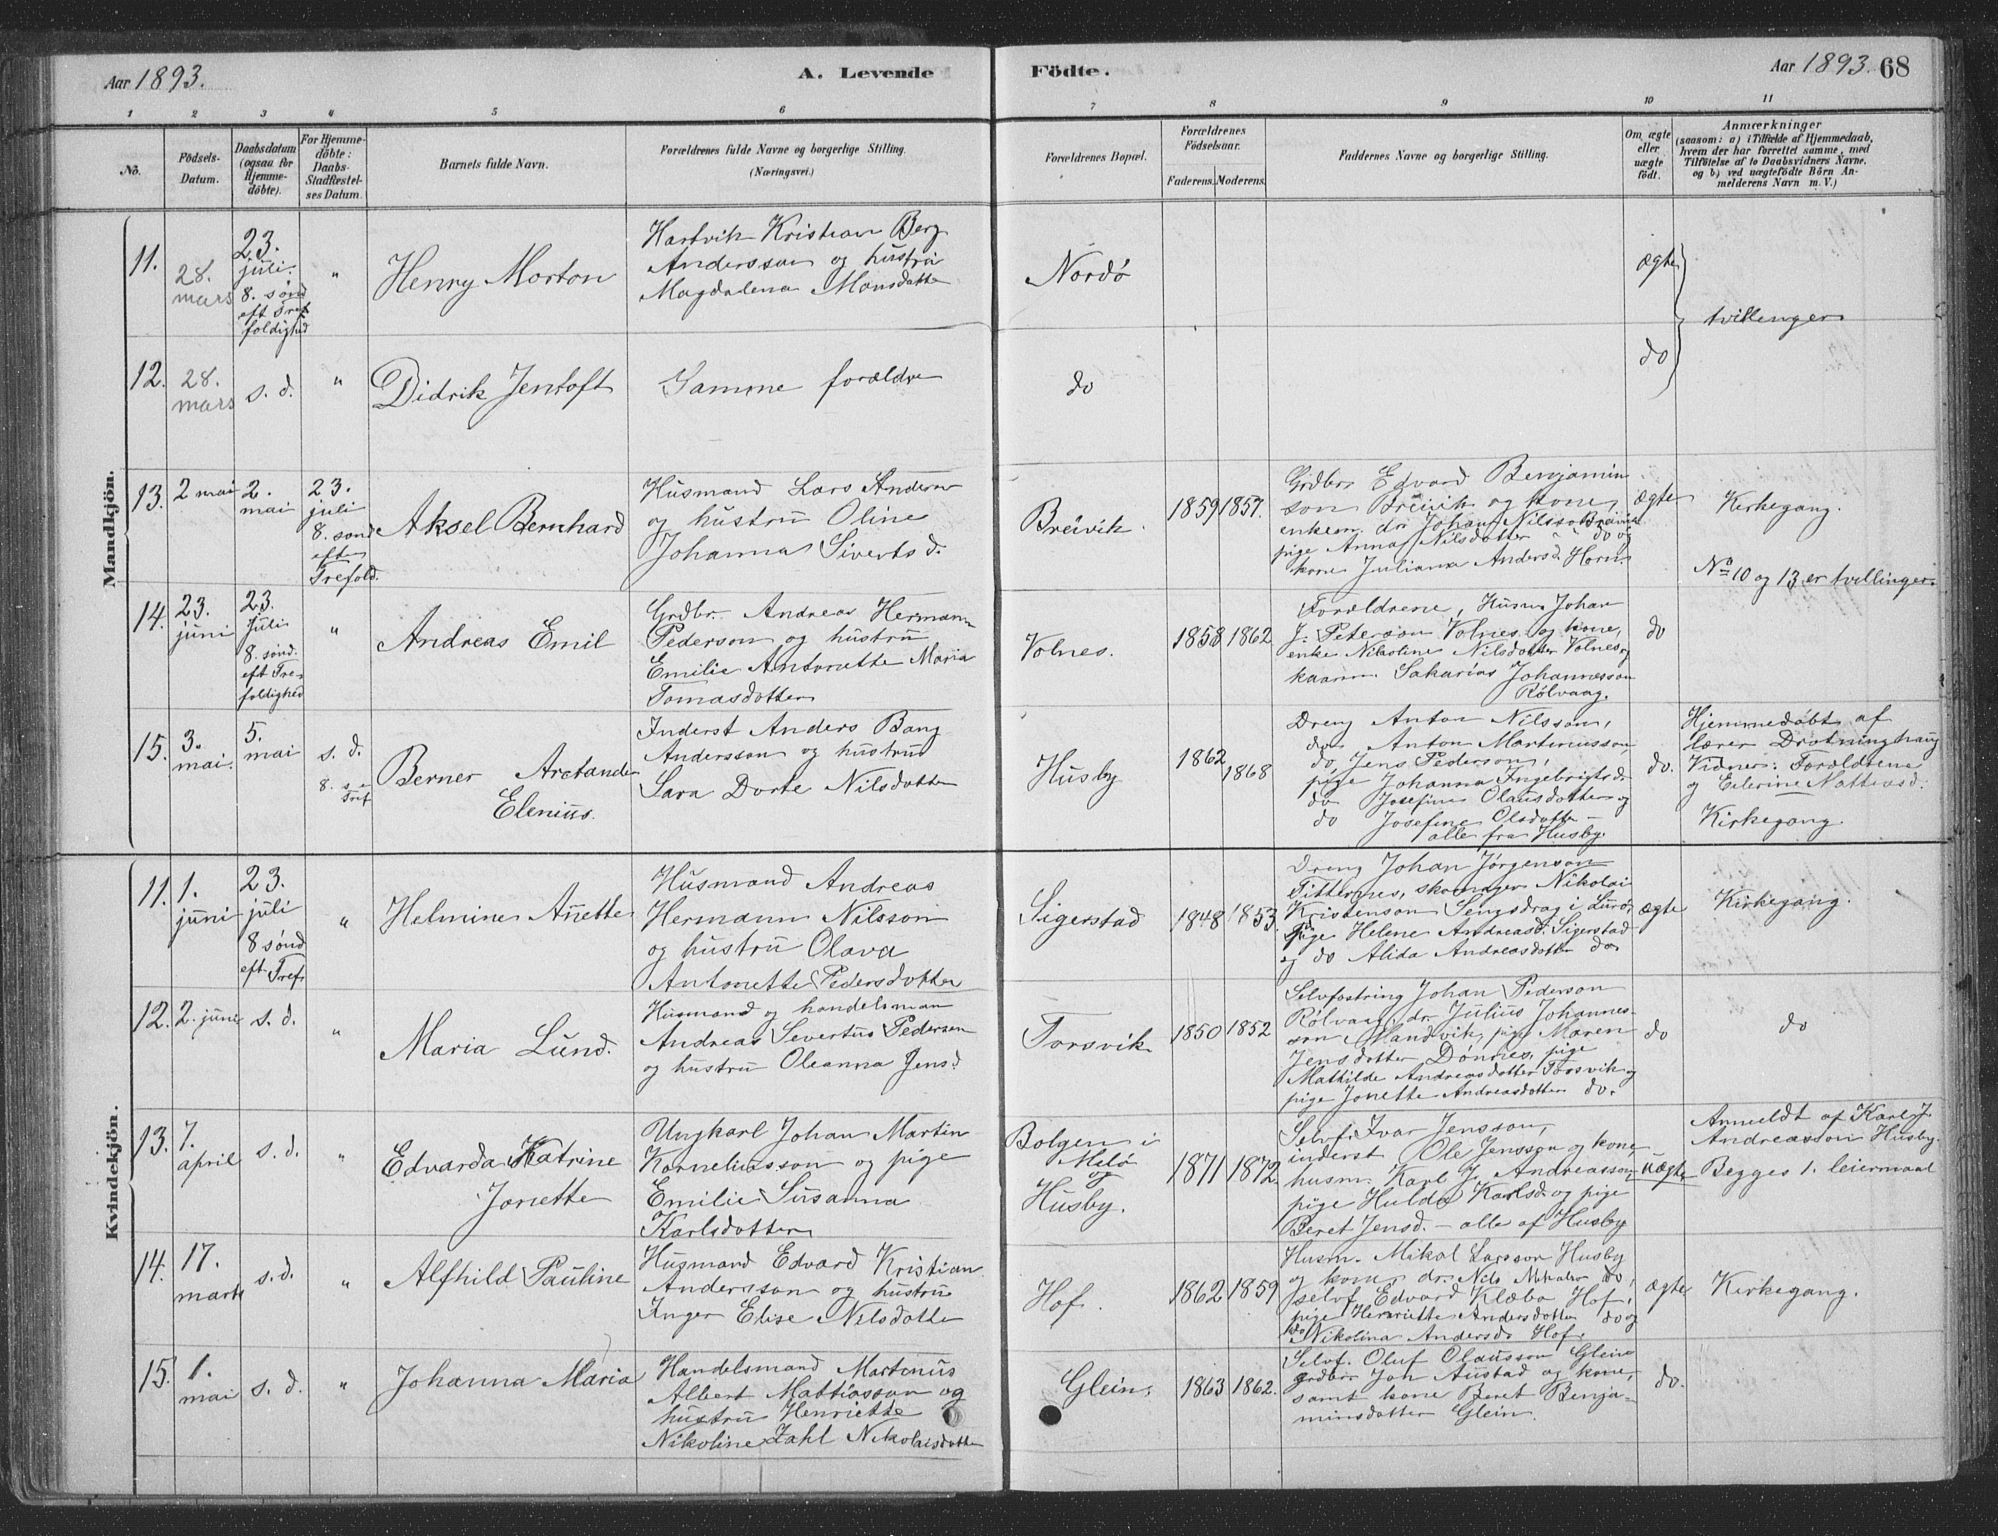 Aar 1893.
A. Levende
Födte.
Aar 1893. 68
1 2 3 4 5 6 7 8 9 10 11
No.
Födsels-
Datum.
Daabsdatum
(ogsaa for
Hjemme-
döbte).
For Hjemme-
döbte:
Daabs-
Stadfæstel-
ses Datum.
Barnets fulde Navn.
Forældrenes fulde Navne og borgerlige Stilling.
(Næringsvei.)
Forældrenes Bopæl.
Forældrenes
Födselsaar.
Faderens. Moderens.
Faddernes Navne og borgerlige Stilling.
Om ægte
eller
uægte
födt.
Anmærkninger
(saasom: a) i Tilfælde af Hjemmedaab,
hvem der har forrettet samme, med
Tilföielse af to Daabsvidners Navne.
og b) ved uægtefödte Börn An-
melderens Navn m. V.)
Mandkjön.
11.
28.
mars
23.
juli.
8. sønd
eft Tref
foldighed
"
Henry Morton
Hartvik Kristian Berg
Andersson og hustru
Magdalena Monsdatte
Nordø
ægte
tvillenger
12.
28.
mars
s. d.
"
Didrik Jentoft
Samme forældre
do
do
13.
2 mai
2.
mai
23.
juli
8. sønd
efter
Trefold.
Aksel Bernhard
Husmand Lars Anderss
og hustru Oline
Johanna Siverts d.
Breivik.
1859 1857.
Grdbr Edvard Benjamin
son Breivik og kone,
enkem. dr Johan Nilsson Breivik
pige Anna Nilsdotter do og
kone Juliana Anders d. Horn.
ægte
Kirkegang.
No 10 og 13 er tvillinger.
14.
23.
juni
23.
Juli
8. sønd.
eft Tre-
foldighed
"
Andreas Emil
Grdbr. Andreas Hermann
Pederson og hustru
Emilie Antonette Maria
Tomasdotter
Volnes.
1858 1862
Forældrene, Husm. Johan
J. Peterson Volnes og kone,
enke Nikoline Nilsdotter Volnes og
kaarm Sakarias Johannesson
Rølvaag.
do
15.
3.
mai.
5.
mai
s. d.
8. s e
Tref
Berner Arctander
Elenius.
Inderst Anders Bang
Andersson og hustru
Sara Dorte Nilsdotter
Husby
1862
1868
Dreng Anton Nilsson,
do Anton Martinusson
do Jens Pederson,
pige Johanna Ingebrigtsd.
do Josefine Olausdotter og
do Josefine Olsdotter -
alle fra Husby.
do.
Hjemmedøbt af
lærer Drotninghaug
Vidner: Forældrene
og Elerine Mattiasd.
Kirkegang.
Kvindekjön.
11.
1.
juni
23.
juli
8 sønd
eft Tref
"
Helmine Anette
Husmand Andreas
Hermann Nilsson
og hustru Olava
Antonette Pedersdotter
Sigerstad
1848 1853.
Dreng Johan Jørgenson
Titternes, skomager Nikolai
Kristenson Sengsdrag i Lurø,
pige Helene Andreasd. Sigerstad
og do Alida Andreasdotter do
ægte
Kirkegang.
12.
2. june
s. d.
"
Maria Lund.
Husmand og handelsman
Andreas Severtus Pedersen
og hustru Oleanna Jensd
Forsvik
1850 1852
Selvfostring Johan Pederson
Rølvaag, dr. Julius Johannes-
son Sandvik, pige Maren
Jensdotter Dønnes, pige
Mathilde Andreasdotter Forsvik og
pige Jonette Andreasdotter do.
do
do
13.
7.
april
s. d.
"
Edvarda Katrine
Jonette
Ungkarl Johan Martin
Korneliusson og pige
Emilie Susanna
Karlsdotter
Bolgen i
Melø
og
Husby.
1871 1872.
Selvf. Ivar Jensson,
inderst Ole Jensson og kone,
husm. Karl J. Andreasson,
pige Hulda Karlsd. og pige
Beret Jensd. - alle af Husby
uægte
Anmeldt af Karl J.
Andreasson Husby.
Begges 1. leiermaal
14.
17.
marts
s. d.
"
Alfhild Pauline
Husmand Edvard Kristian
Andersson og hustru
Inger Elise Nilsdotte
Hof.
1862 1859
Husm. Mikal Larsson Husby
og kone, dr. Nils Mikalss do,
selvf Edvard Klæbo Hof,
pige Henriette Andersdotter do og
do Nikolina Andersd. Hof.
ægte
Kirkegang.
15.
1.
mai
s. d.
"
Johanna Maria
Handelsmand Martinus
Albert Mattiasson og
hustru Henriette
Nikoline Zahl Nikolaisdotte
Glein.
1863 1862.
Selvf. Oluf Olausson Glein
grdbr Jon Austad og kone,
samt kone Beret Benja-
minsdotter Glein.
do.